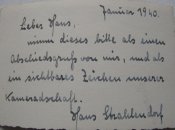 Januar 1940.
Lieber Hans,
nimm dieses bitte als einen
Abschiedsgruß von mir, und als
ein sichtbares Zeichen unserer
Kameradschaft.
Hans Strahlendorf